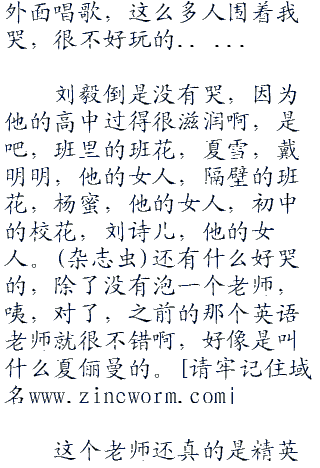 外面唱歌，这么多人围着我
哭，很不好玩的．．．．．
刘毅倒是没有哭，因为
他的高中过得很滋润啊，是
吧，班里的班花，夏雪，戴
明明，他的女人，隔壁的班
花，杨蜜，他的女人，初中
的校花，刘诗儿，他的女
人。(杂志虫)还有什么好哭
的，除了没有泡一个老师，
咦，对了，之前的那个英语
老师就很不错啊，好像是叫
什么夏俪曼的。[请牢记住域
名www.zincworm.com]
这个老师还真的是精英